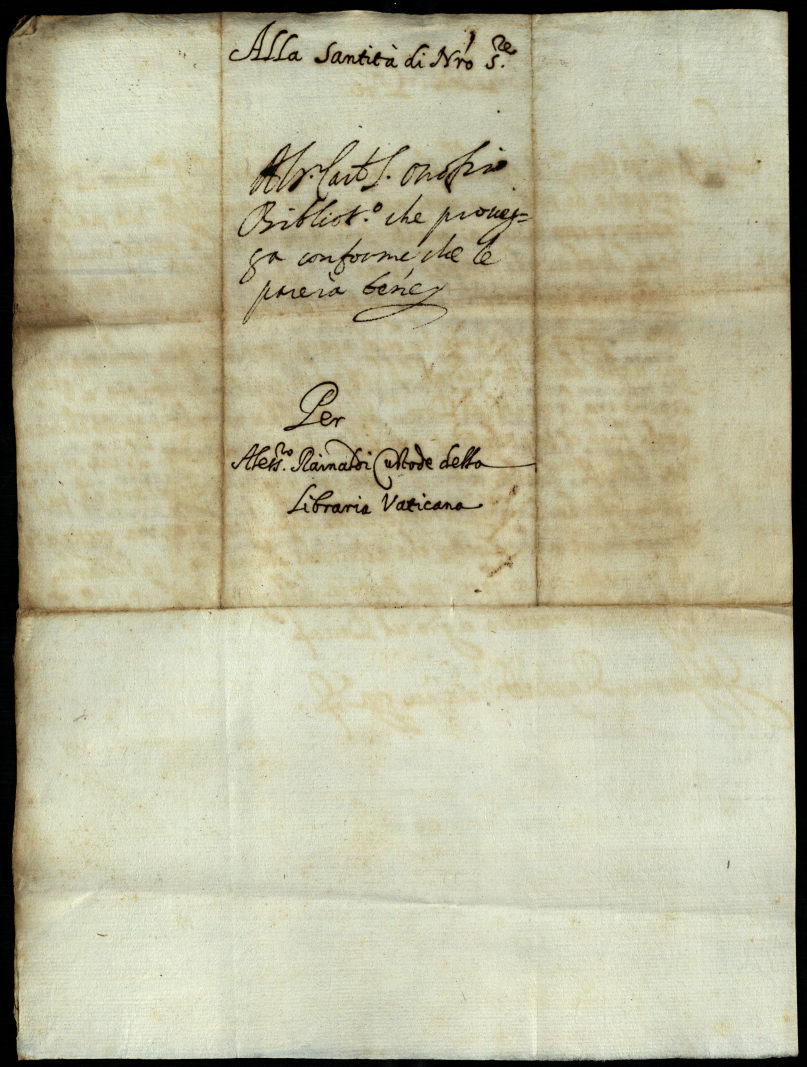 Alla Santità di N'ro S.re
Al S.r Card S. Onofrio
Bibliot.o che proueg=
ga conforme che le
parerà bene
Per
Aless.ro Rainaldi Custode della
Libraria Vaticana